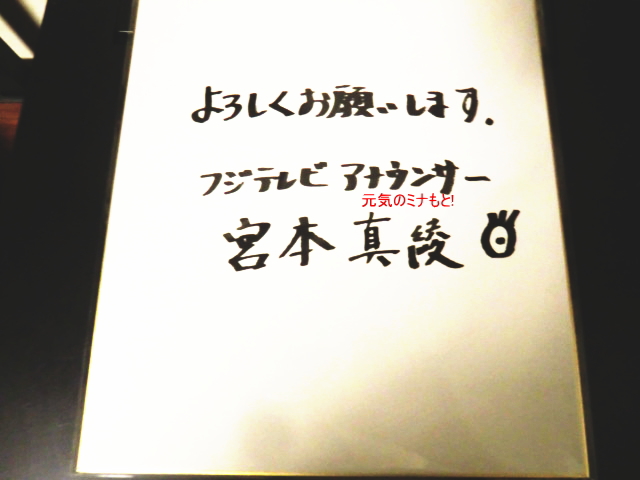 よろしくお願いします.
フジテレビ アナウンサー
元気のミナもと!
宮本真綾